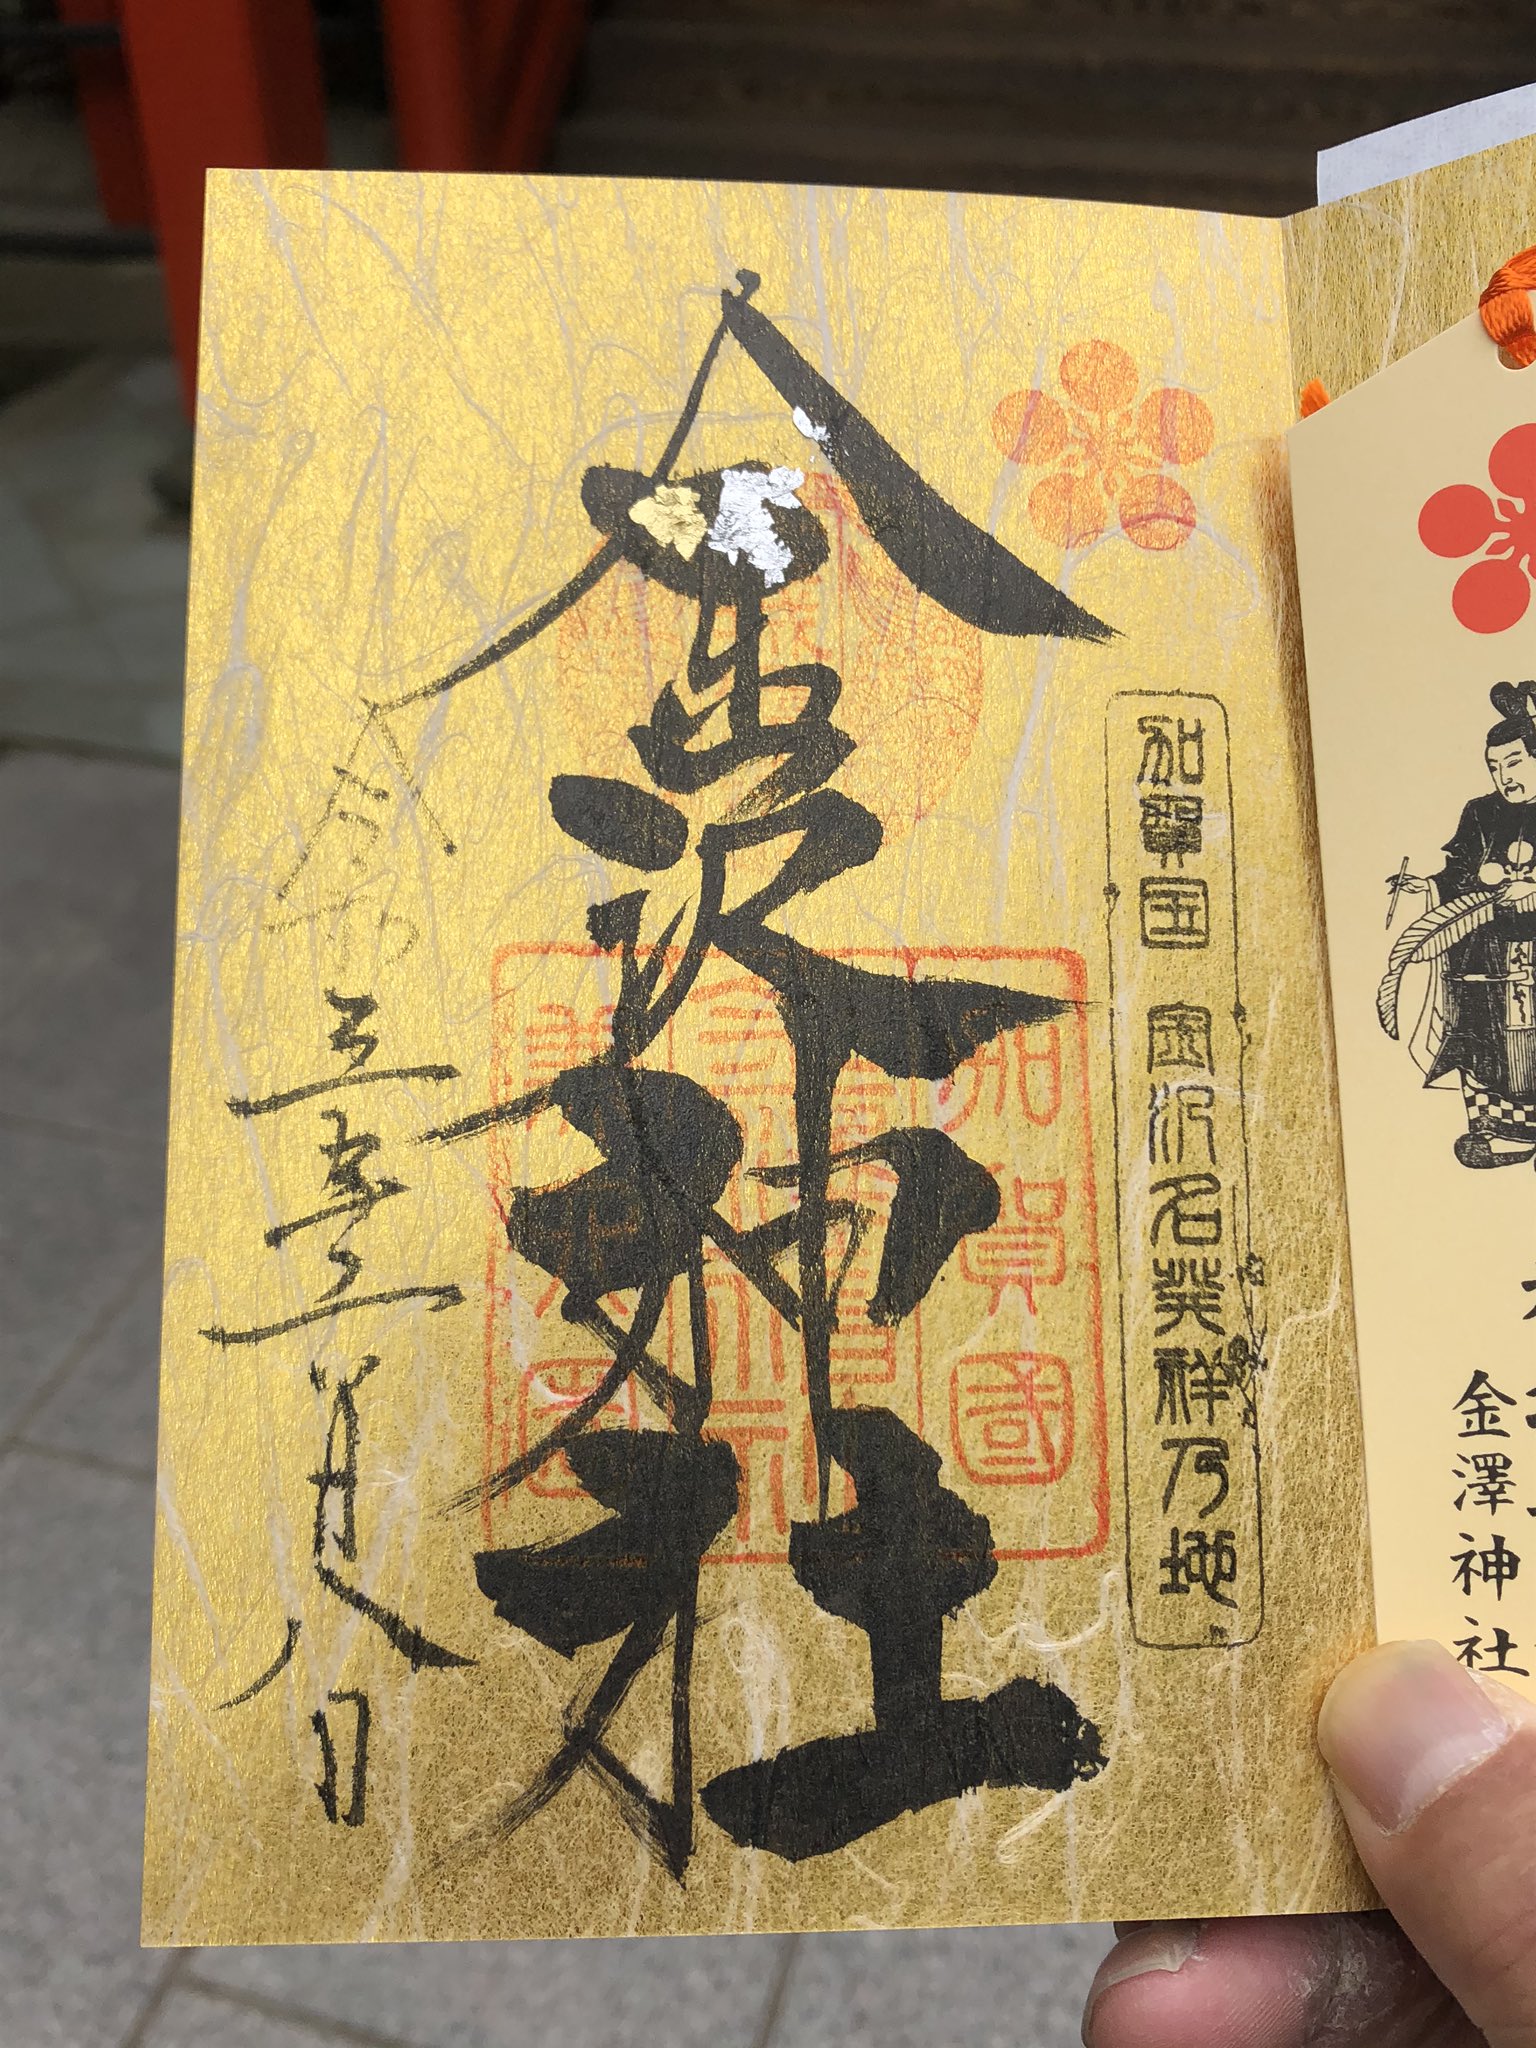 加賀国 金沢名発祥乃地
金沢神社
令和五年五月八日
加賀國
金澤神社